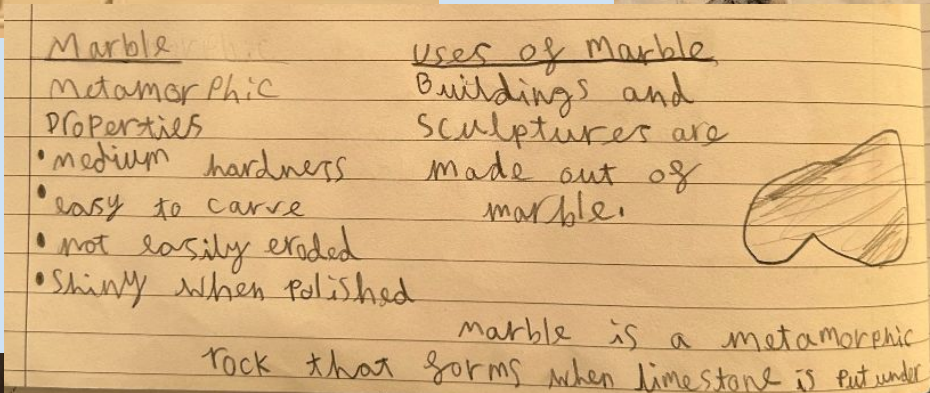 Marble
Metamorphic
Properties
• medium hardness
• easy to carve
• not easily eroded
• Shiny when polished
Uses of Marble
Buildings and
Sculptures are
made out of
marble.
Marble is a metamorphic
rock that forms when limestone is put under